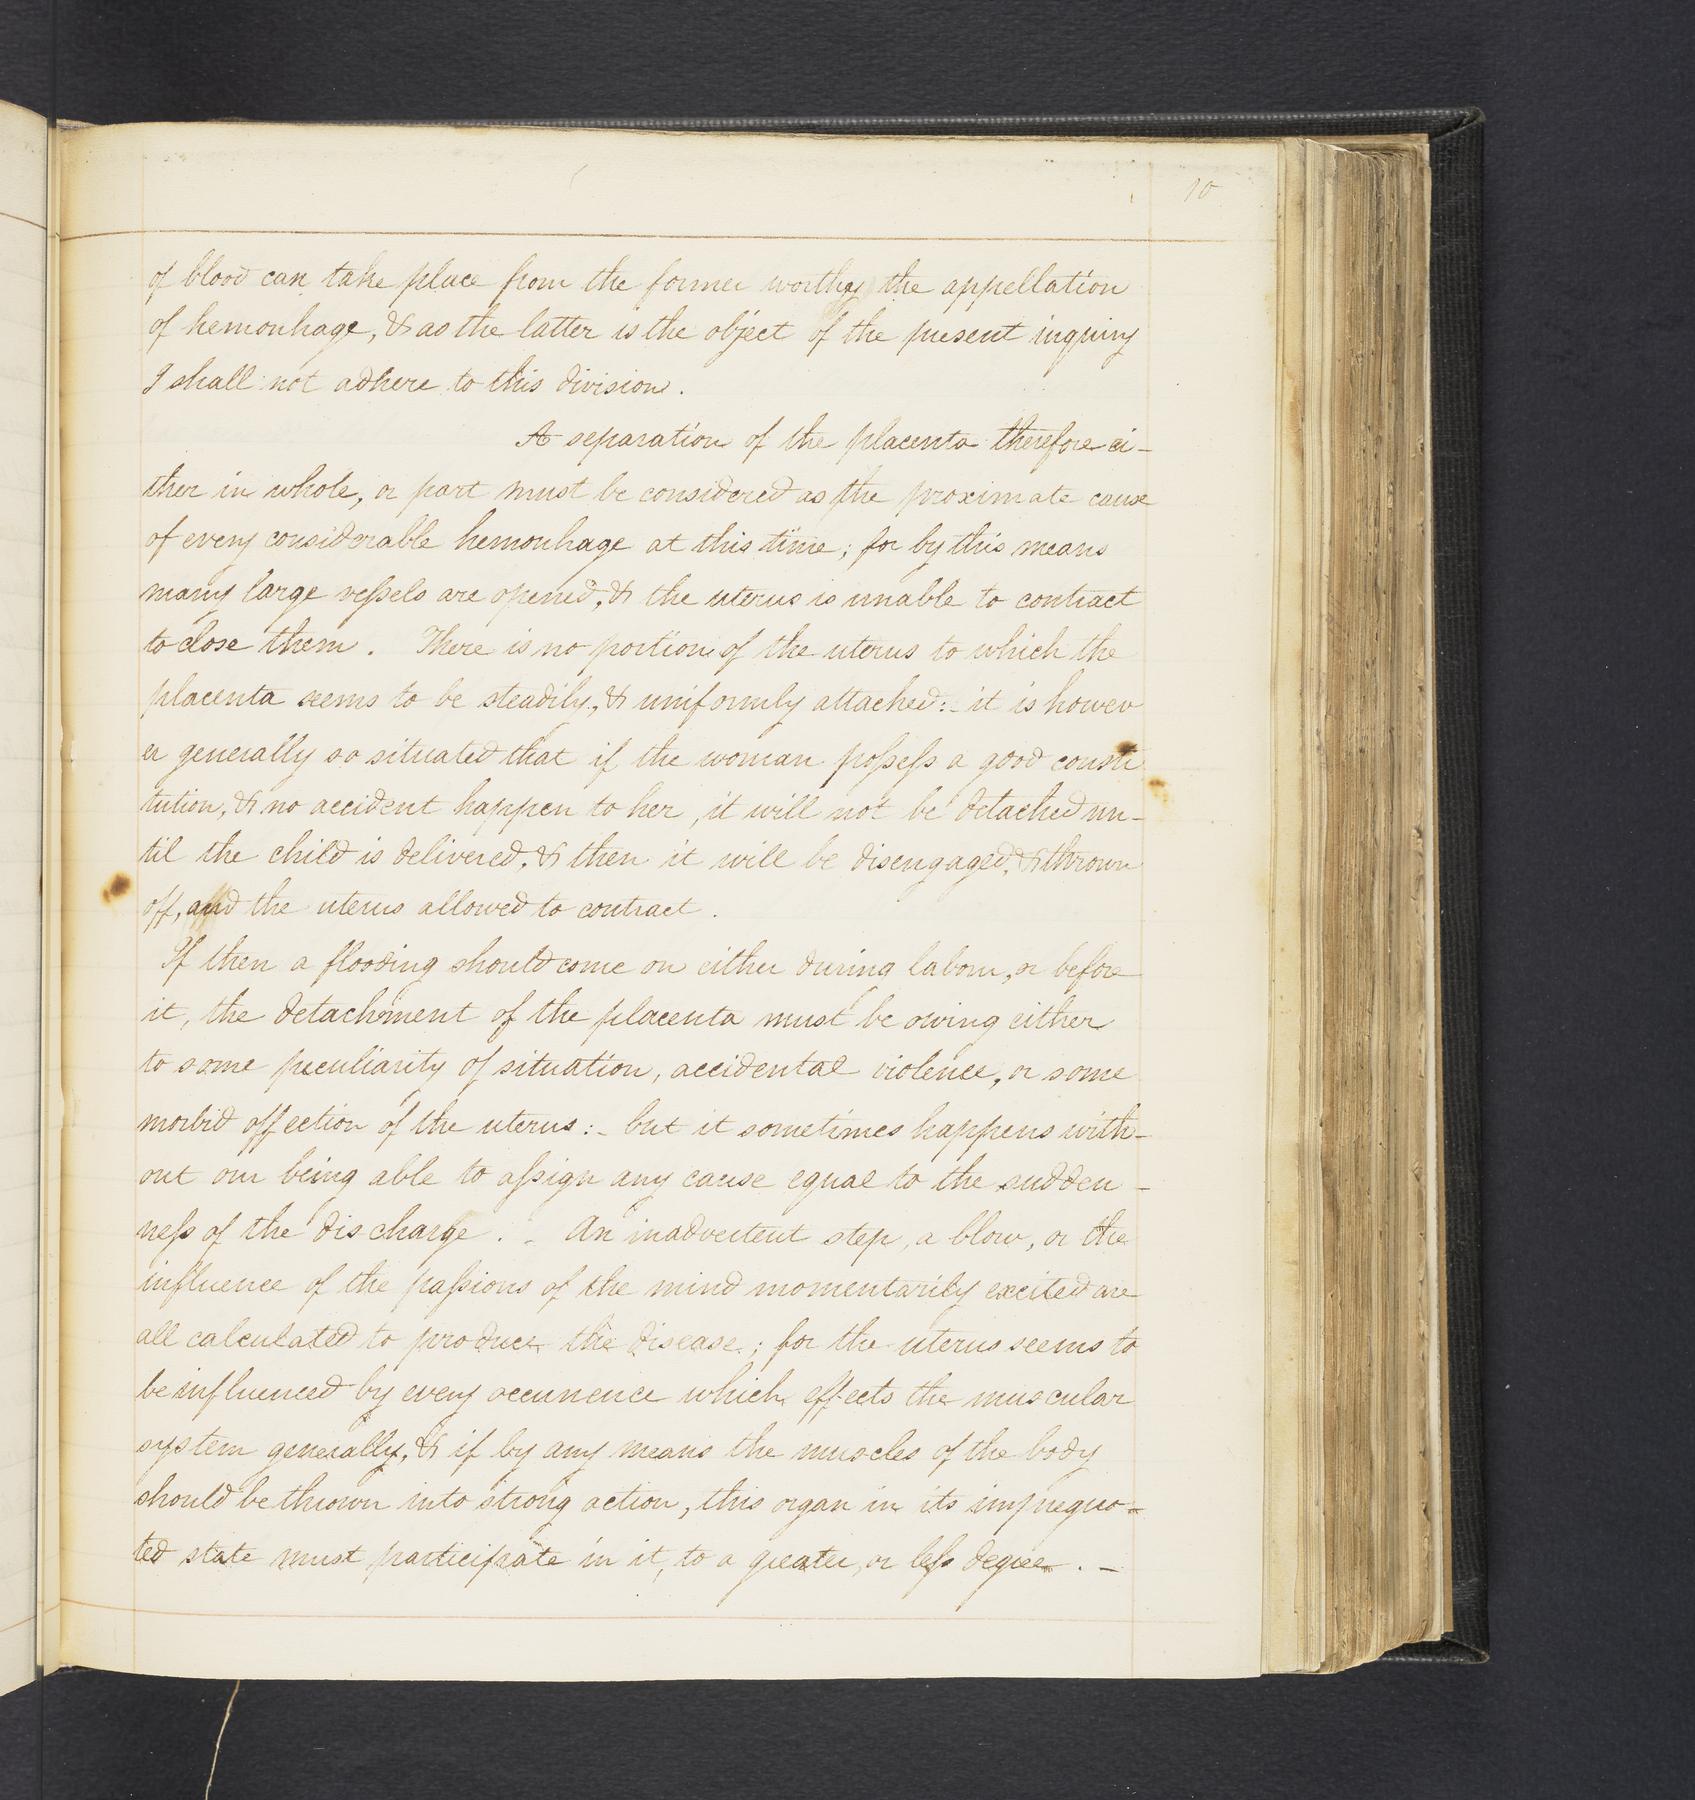 10
of blood can take place from the former worthy the appellation
of hemorrhage, & as the latter is the object of the present inquiry
I shall not adhere to this division.
A separation of the placenta therefore ei-
ther in whole, or part must be considered as the proximate cause
of every considerable hemorrhage at this time; for by this means
many large vessels are opened, & the uterus is unable to contract
to close them. There is no portion of the uterus to which the
placenta seems to be steadily, & uniformly attached:- it is howev
er generally so situated that if the woman possess a good consti
tution, & no accident happen to her, it will not be detached un-
til the child is delivered, & then it will be disengaged, & thrown
off, and the uterus allowed to contract.
If then a flooding should come on either during labour, or before
it, the detachment of the placenta must be owing either
to some peculiarity of situation, accidental violence, or some
morbid affection of the uterus:- but it sometimes happens with-
out our being able to assign any cause equal to the sudden-
ness of the discharge. - An inadvertent step, a blow, or the
influence of the passions of the mind momentarily excited are
all calculated to produce the disease; for the uterus seems to
be influenced by every occurrence which effects the muscular
system generally, & if by any means the muscles of the body
should be thrown into strong action, this organ in its impregna=
ted state must participate in it, to a greater, or less degree. -